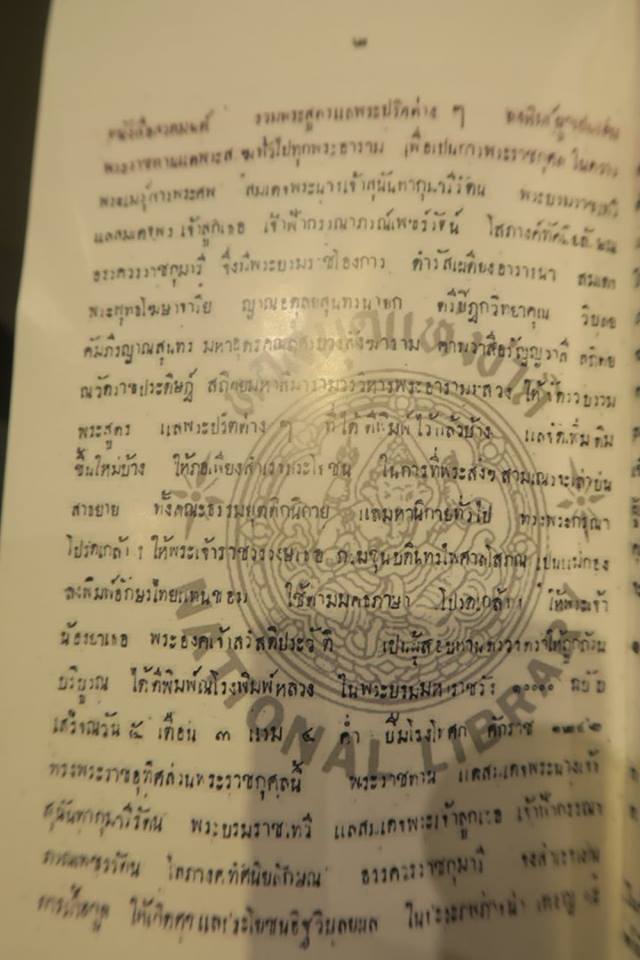 ๒
หนังสือสวดมนต์ รวมพระสูตรแลพระปริตต่าง ๆ
พระราชทานแด่พระสงฆ์ทั่วไปทุกพระอาราม เพื่อเปนการพระราชกุศล ในคราว
พระเมรุการพระศพ สมเดจพระนางเจ้าสุนันทากุมารีรัตน พระบรมราชเทวี
แลสมเดจพระเจ้าลูกเธอ เจ้าฟ้ากรรณาภรณ์เพชร์รัตน์ โสภางค์ทัศนิยลักษณ
อรรควรราชกุมารี จึ่งมีพระบรมราชโองการ ดำรัสเผดียงอาราธนา สมเดจ
พระพุทธโฆษาจาริย ญาณอดุลยสุนทรนายก ตรีปิฎกวิทยาคุณ วิบูลย
คัมภีรญาณสุนทร มหาอุดรคณฤศรบวรสังฆาราม คามวาสีอรัญญวาสี สถิตย
ณวัดราชประดิษฐ์ สถิตยมหาสีมารามวรวิหารพระอารามหลวง ให้จัดรวบรวม
พระสูตร แลพระปริตต่าง ๆ ที่ได้ตีพิมพ์ไว้แล้วบ้าง แลจัดเพิ่มเติม
ขึ้นใหม่บ้าง ให้ภอเพียงสำเรจประโยชน ในการที่พระสงฆ์สามเณรจะเล่าบ่น
สาธยาย ทั้งคณะธรรมยุตติกนิกาย แลมหานิกายทั่วไป ทรงพระกรุณา
โปรดเกล้าฯ ให้พระเจ้าราชวรวงษเธอ กรมขุนบดินทรไพศาลโสภณ เปนแม่กอง
ลงพิมพ์อักษรไทยแทนขอม ใช้ตามมคธภาษา โปรดเกล้าฯ ให้พระเจ้า
น้องยาเธอ พระองคเจ้าสวัสดิประวัติ เปนผู้สอบทานตรวจตราให้ถูกถ้วน
บริบูรณ ได้ตีพิมพ์ณโรงพิมพ์หลวง ในพระบรมมหาราชวัง ๑๐๐๐๐ ฉบับ
เสร็จณวัน ๕ เดือน ๓ แรม ๔ ค่ำ ปีมโรงโทศก ศักราช ๑๒๔๒
ทรงพระราชอุทิศส่วนพระราชกุศลนี้ พระราชทาน แดสมเดจพระนางเจ้า
สุนันทากุมารีรัตน พระบรมราชเทวี แลสมเดจพระเจ้าลูกเธอ เจ้าฟ้ากรรณา
ภรณเพชรรัตน โสภางคทัศนิยลักษณ อรรควรราชกุมารี
ให้เกิดศุขแลประโยชนอิฐวิบุลยผล
หอสมุดแห่งชาติ
NATIONAL LIBRARY